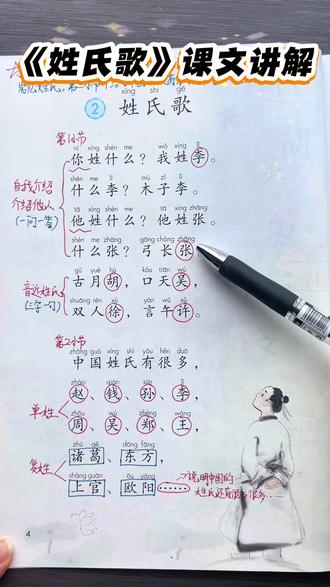 《姓氏歌》课文讲解
xìng shì gē
2 姓氏歌
第1小节
nǐ xìng shén me wǒ xìng lǐ
你姓什么？我姓李。
shén me lǐ mù zǐ lǐ
什么李？木子李。
自我介绍
介绍他人
(一问一答)
tā xìng shén me tā xìng zhāng
他姓什么？他姓张。
shén me zhāng gōng cháng zhāng
什么张？弓长张。
gǔ yuè hú kǒu tiān wú
古月胡，口天吴，
音近姓氏
(三字一句)
shuāng rén xú yán wǔ xǔ
双人徐，言午许。
第2小节
zhōng guó xìng shì yǒu hěn duō
中国姓氏有很多，
zhào qián sūn lǐ
赵、钱、孙、李，
单姓
zhōu wú zhèng wáng
周、吴、郑、王，
zhū gě dōng fāng
诸葛、东方，
复姓
shàng guān ōu yáng
上官、欧阳……
说明中国的
姓氏还有很多很多……
4